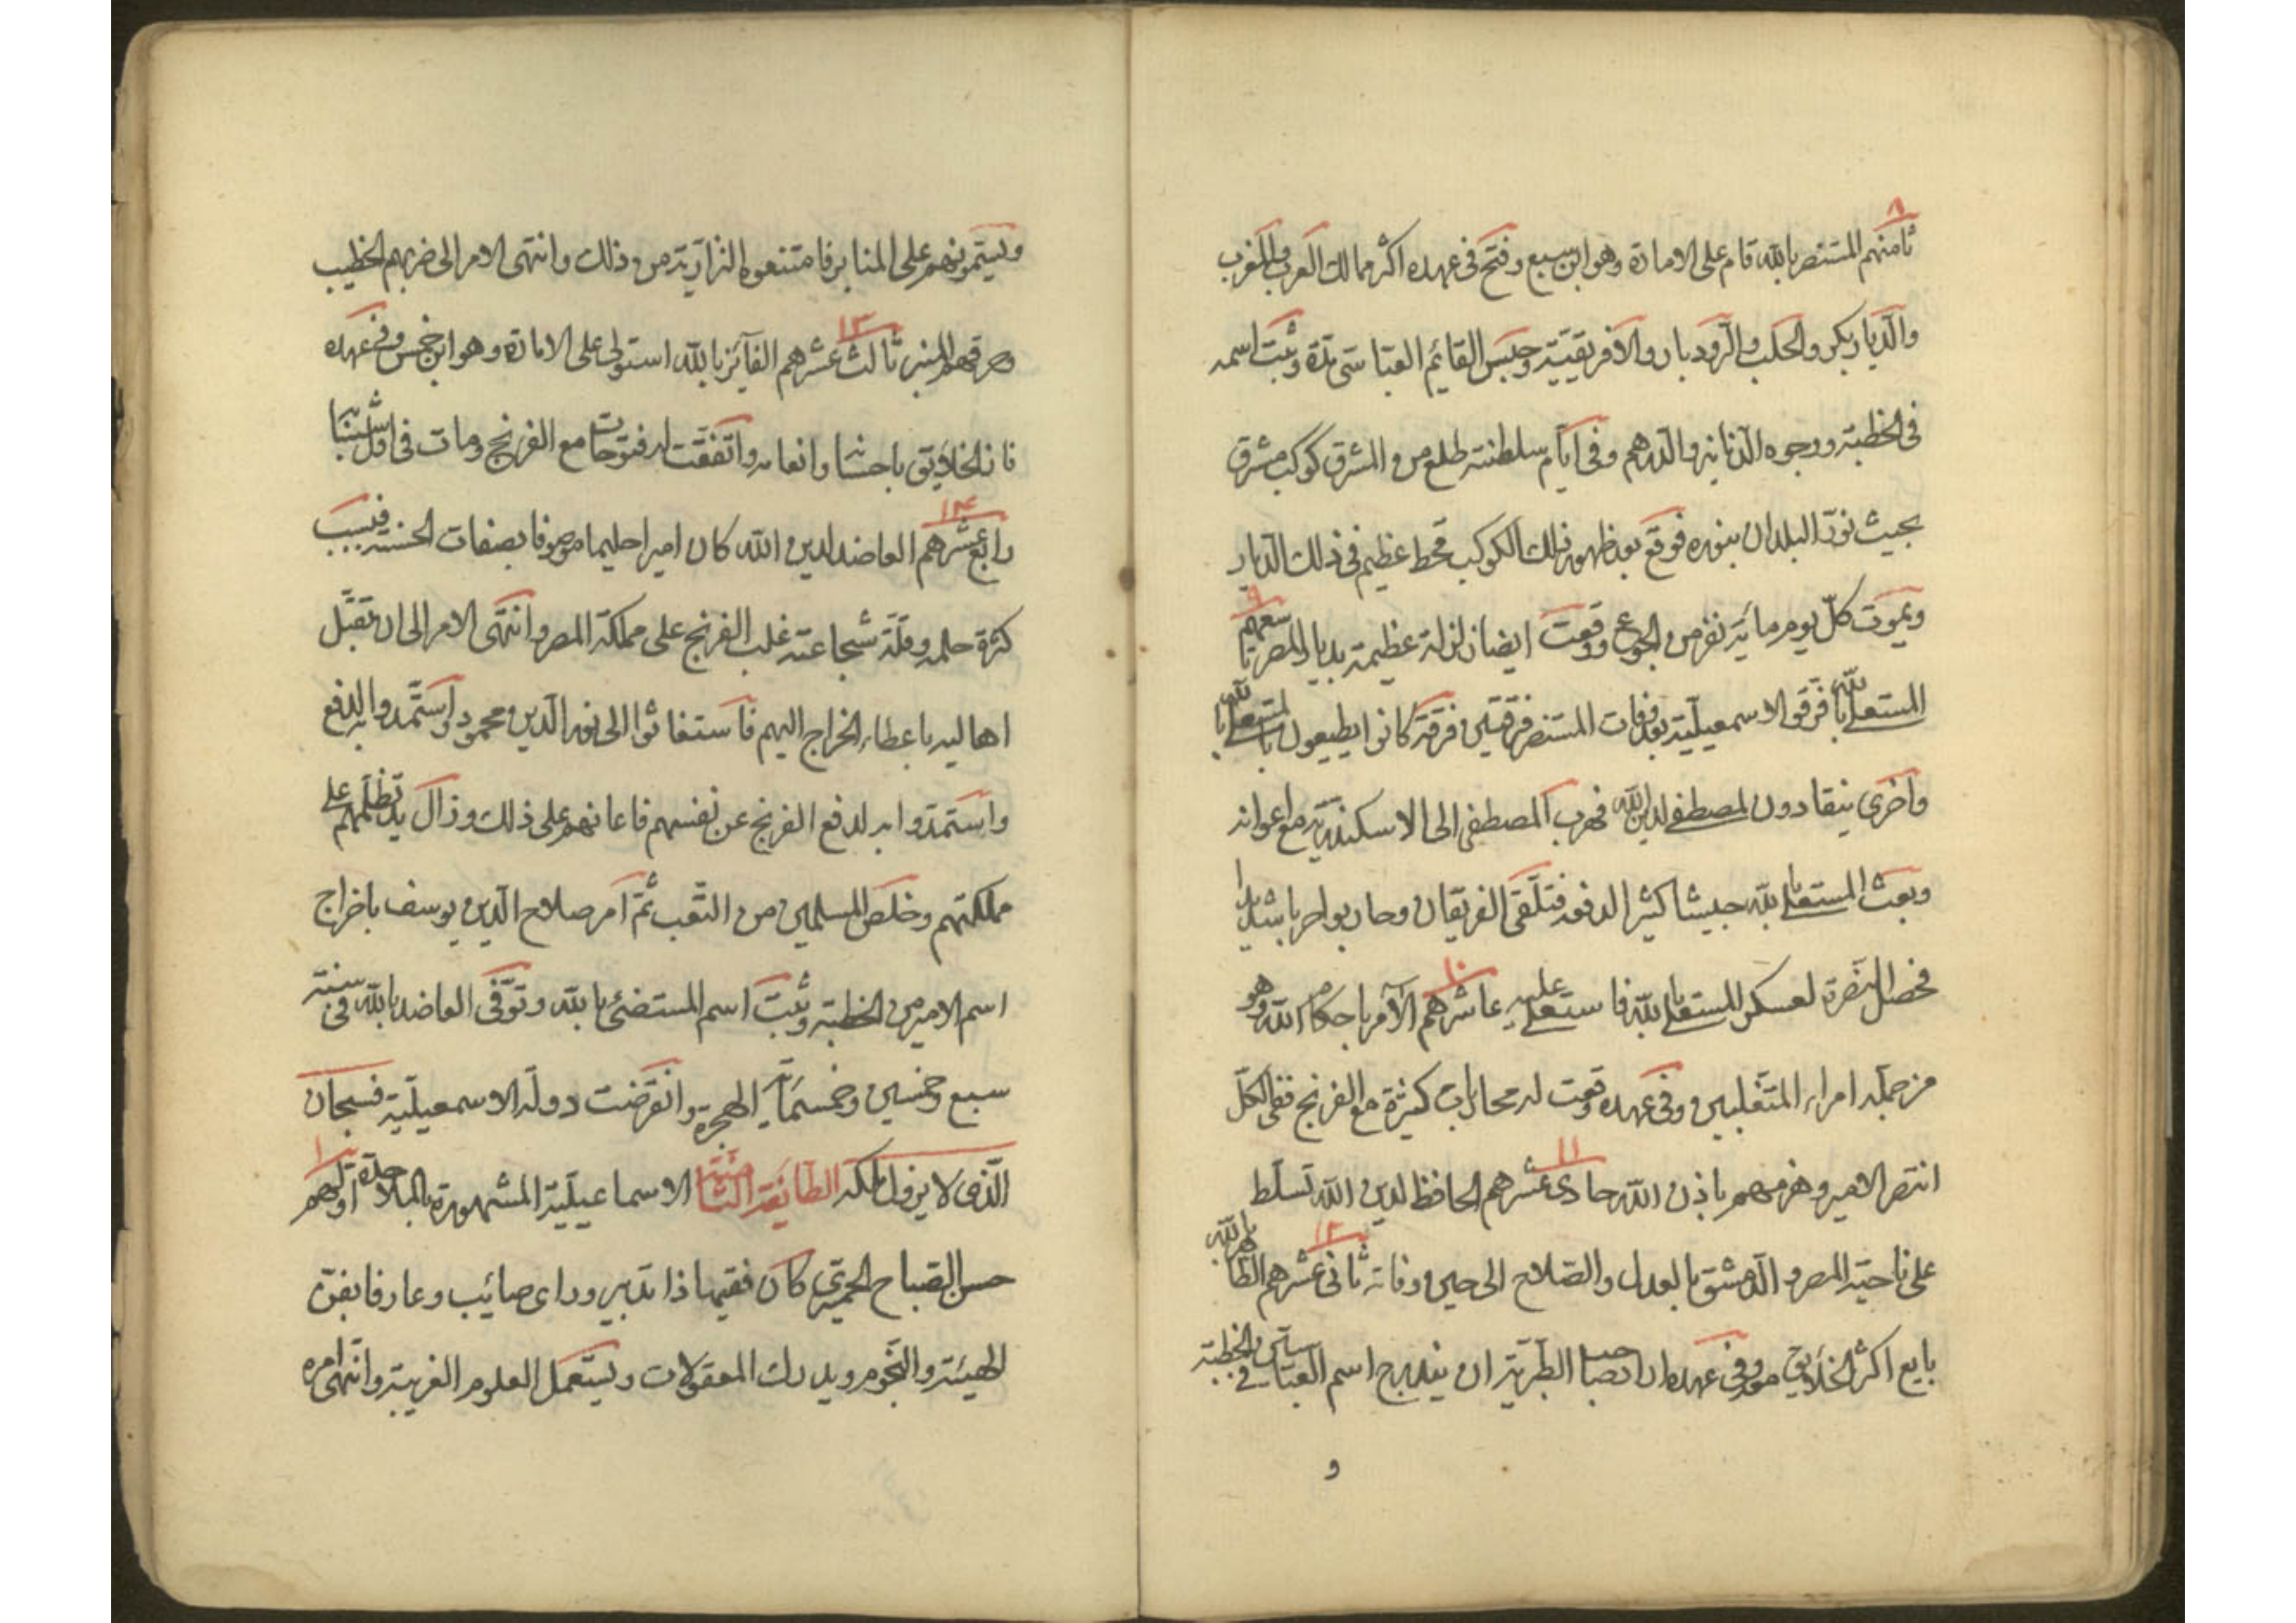 ٨
ثامنهم المستنصر بالله قام على الامارة وهو ابن سبع وفتح فى عهده اكثر ممالك العرب والمغرب
والديار بكر والحلب والرودبار والافريقيّة وحبس القائم العباسى مدّة وثبت اسمه
فى الخطبة ووجوه الدنانير والدرهم وفى ايّام سلطنته طلع من المشرق كوكب مشرق
بحيث نوّر البلدان بنوره فوقع بعد ظهور ذلك الكوكب قحط عظيم فى ذلك الديار
٩
ويموت كلّ يوم مائة نفر من الجوع ووقعت ايضا زلزلة عظيمة بديار المصر تاسعهم
المستعلى بالله فرّقوا الاسمعيليّة بعد وفات المستنصر فرقتين فرقة كانوا يطيعون بالمستعلى بالله
واخرى ينقادون لمصطفى لدين الله فهرب المصطفى الى الاسكندريّة مع اعوانه
وبعث المستعلى بالله جيشا كثير الدفور فتلقّى الفريقان وحاربوا حربا شديدا
١٠
فحصل النصرة لعسكر المستعلى بالله فاستعلى عليه عاشرهم الآمر باحكام الله وهو
من جملة امراء المتغلبين وفى عهده وقعت له محاربات كثيرة مع الفرنج ففى الكلّ
١١
انتصر الامير وهزمهم باذن الله حادى عشرهم الحافظ لدين الله تسلّط
١٢
على ناحية المصر والدمشق بالعدل والصّلاح الى حين وفاته ثانى عشرهم الظافر بالله
بايع اكثر الخلايق وفى عهده اراد صاحب الطبرية ان يندرج اسم العباسى فى الخطبة
و
ويستمونهم على المنابر فامتنعوه النزاريّة من ذلك وانتهى الامر الى ضربهم الخطيب
١٣
وحرقهم المنبر ثالث عشرهم الفآئز بالله استولى على الامارة وهو ابن خمس وفى عهده
فاز الخلايق باحسانه وانعامه واتفقت له فتوحات مع الفرنج ومات فى اول شبابه
١٤
رابع عشرهم العاضد لدين الله كان اميرا حليما موصوفا بصفات الحسنة فبسبب
كثرة حلمه وقلّة شجاعته غلب الفرنج على مملكة المصر وانتهى الامر الى ان تقبّل
اهاليه باعطاء الخراج اليهم فاستغاثوا الى نور الدين محمود واستمدوا به لدفع
واستمدّوا به لدفع الفرنج عن نفسهم فاعانهم على ذلك وزال يد تظلّمهم على
مملكتهم وخلص المسلمين من التعب ثمّ امر صلاح الدين يوسف باخراج
اسم الامير من الخطبة وثبت اسم المستضئ بالله وتوفّى العاضد بالله فى سنة
سبع وخمسين وخمسمأية الهجرة وانقرضت دولة الاسمعيليّة فسبحان
١
الّذى لا يزول ملكه الطائفة الثانية الاسماعيليّة المشهورة بالملاحدة اوّلهم
حسن الصباح الحميرى كان فقيها ذا تدبير وراى صائب وعارفا بفنّ
الهيئة والنجوم ويدرك المعقولات ويستعمل العلوم الغريبة وانتهى امره